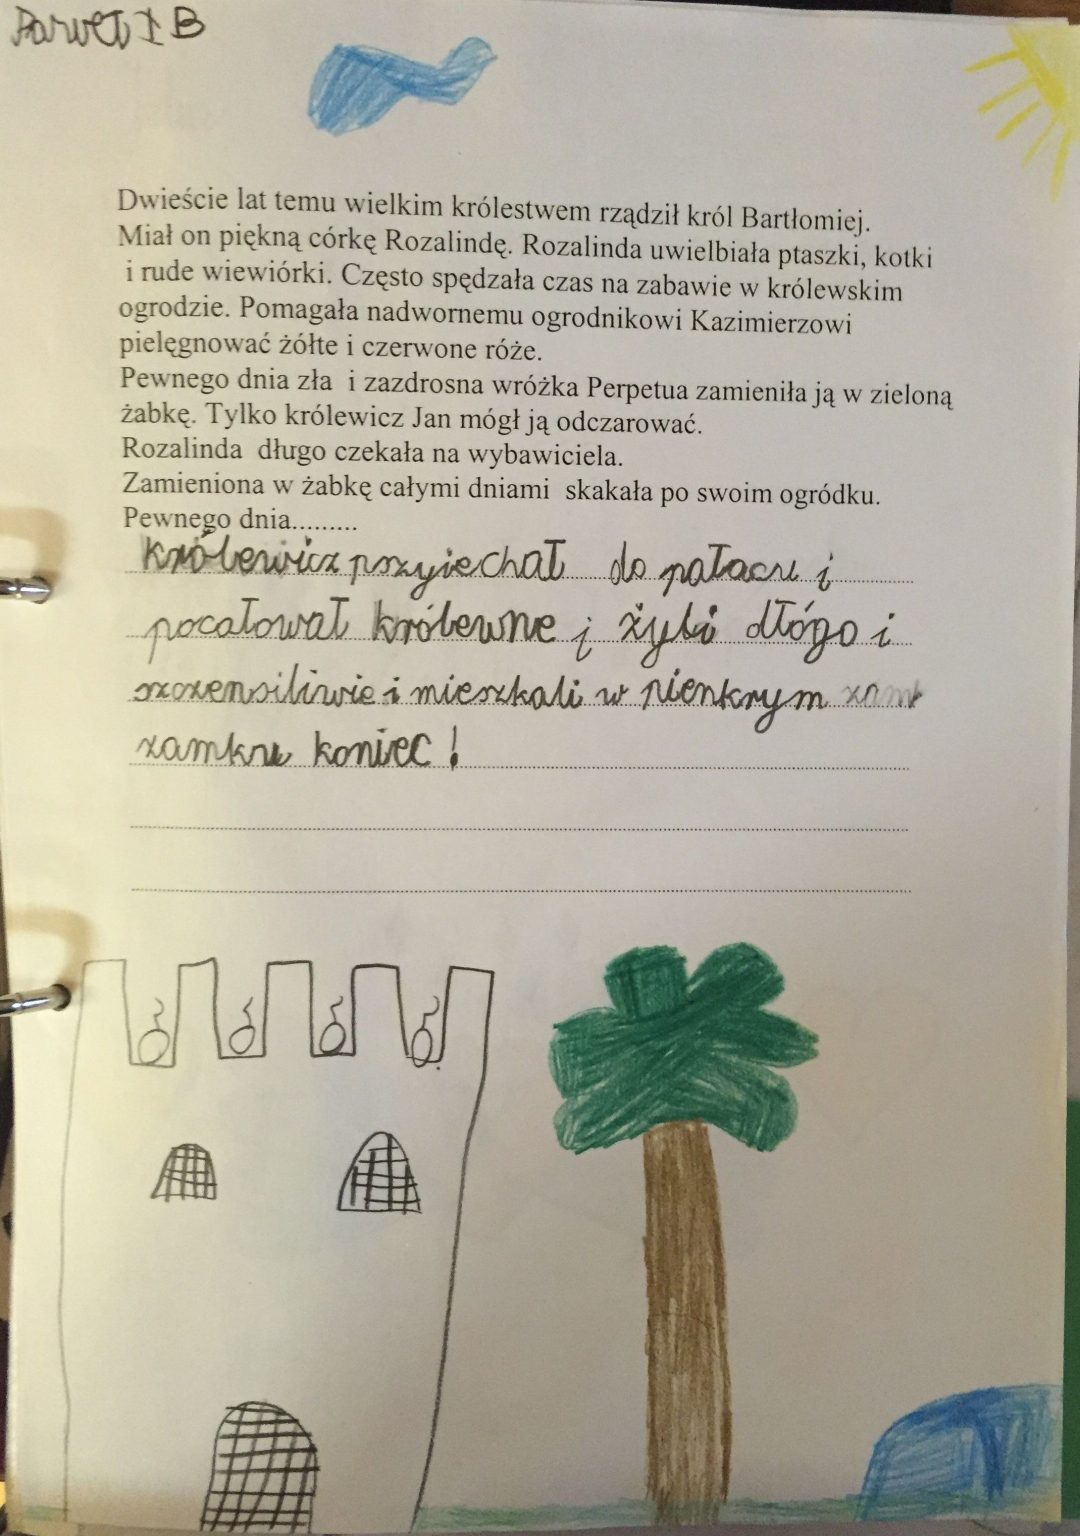 Paweł I B
Dwieście lat temu wielkim królestwem rządził król Bartłomiej.
Miał on piękną córkę Rozalindę. Rozalinda uwielbiała ptaszki, kotki
i rude wiewiórki. Często spędzała czas na zabawie w królewskim
ogrodzie. Pomagała nadwornemu ogrodnikowi Kazimierzowi
pielęgnować żółte i czerwone róże.
Pewnego dnia zła i zazdrosna wróżka Perpetua zamieniła ją w zieloną
żabkę. Tylko królewicz Jan mógł ją odczarować.
Rozalinda długo czekała na wybawiciela.
Zamieniona w żabkę całymi dniami skakała po swoim ogródku.
Pewnego dnia.........
królewicz przyiechał do pałacu i
pocałował królewne i żyli dłógo i
szczensiliwie i mieszkali w pienkrym zamk
zamku koniec!